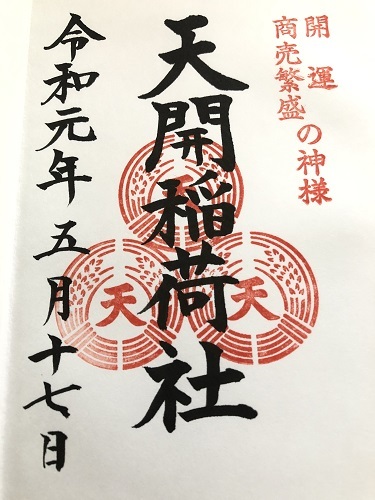 開運
商売繁盛の神様
天開稲荷社
天
天
令和元年五月十七日